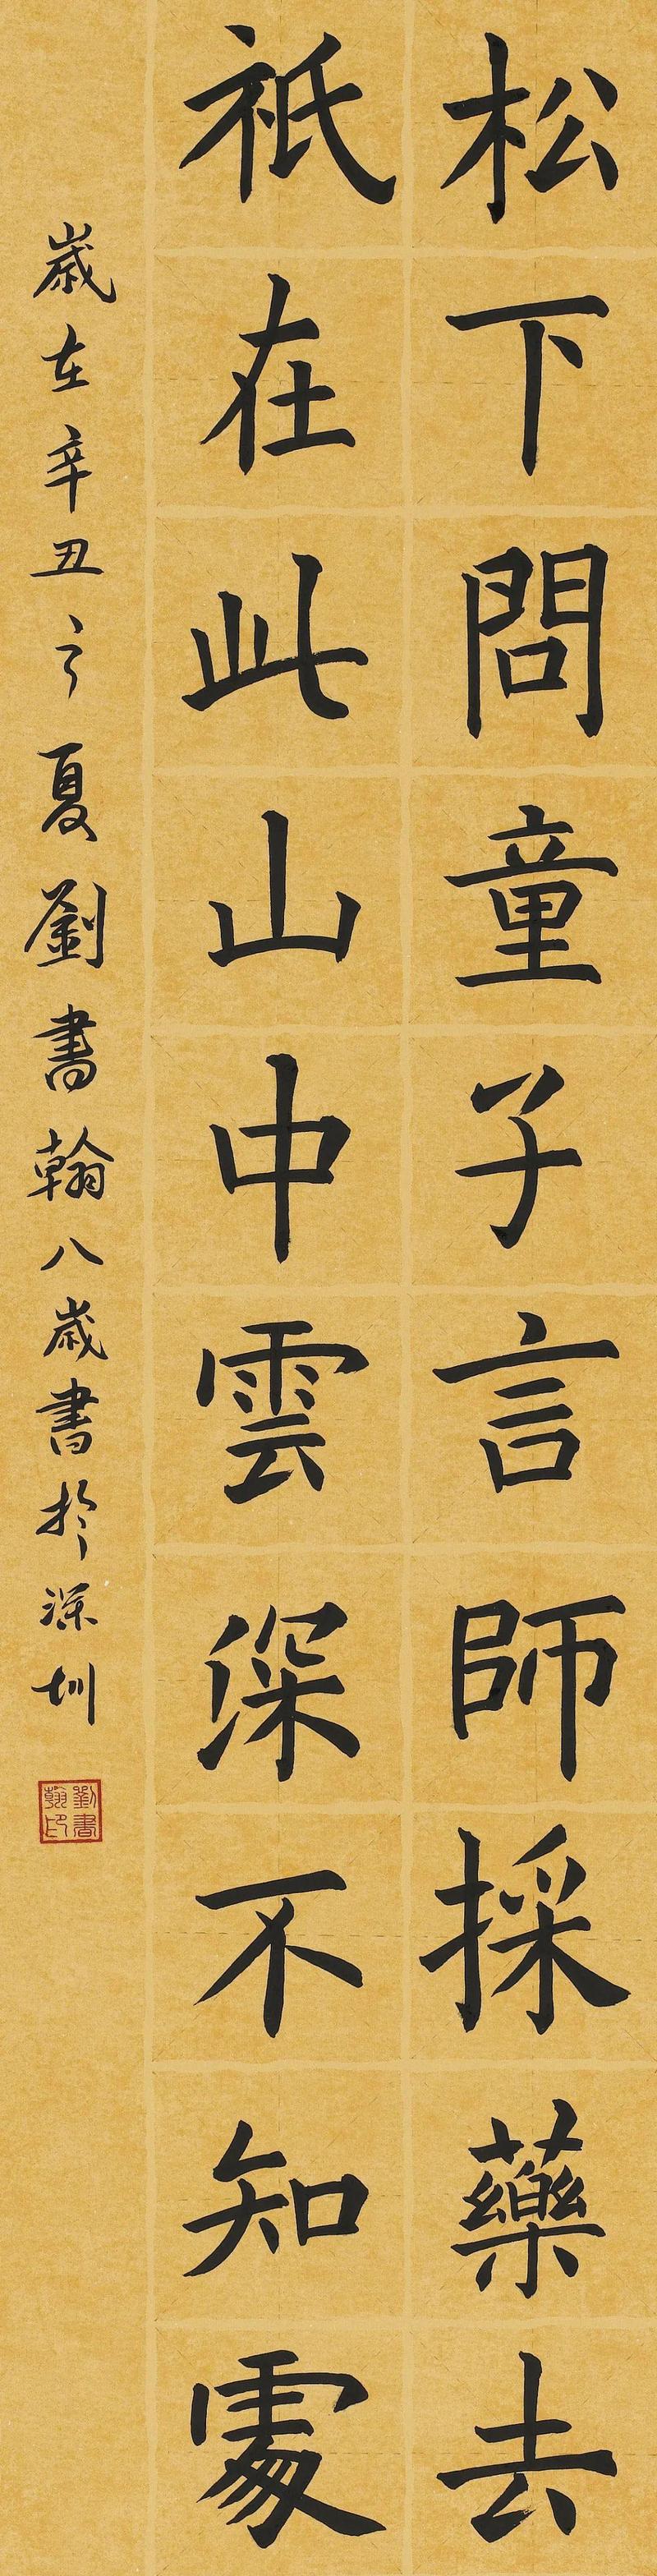 松下問童子言師採藥去
祇在此山中雲深不知處
歲在辛丑之夏劉書翰八歲書於深圳
劉書翰印